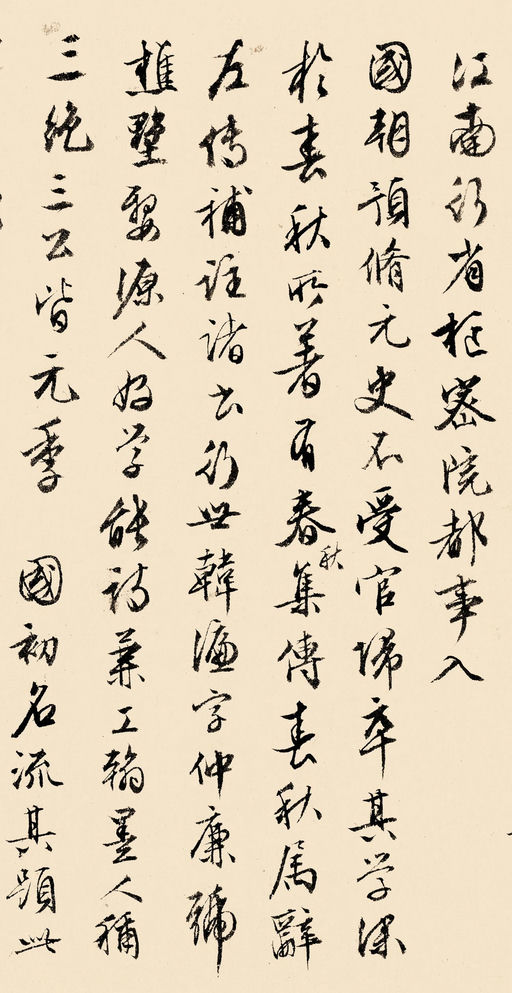 江南行省枢密院都事入
國朝預脩元史不受官歸卒其学深
於春秋所著有春秋集傳春秋属辭
左传補註諸书行世韓濂字仲廉號
樵墅婺源人好学能诗兼工翰墨人稱
三絶三公皆元季 國初名流其題此